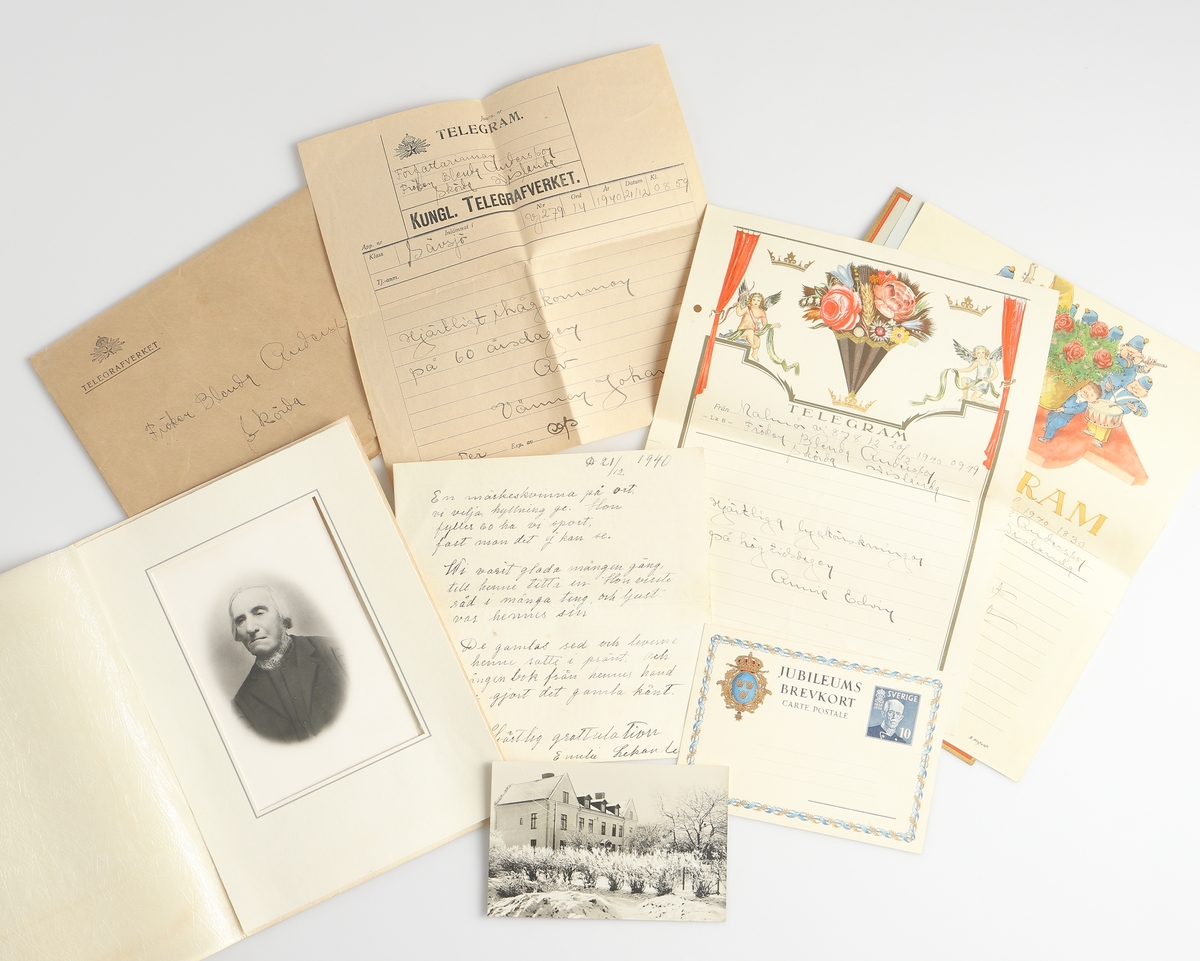 TELEGRAFVERKET
Fröken Blenda
Skörda
TELEGRAM.
Författarinnan
Fröken Blenda Andersson
Skörda Vislanda
KUNGL. TELEGRAFVERKET.
App. nr Inlämnat i Nr Ord År Datum Kl.
Klass Sävsjö 279 14 1940 21/12 08.57
Tj.-anm.
Hjärtligt ihågkommen
på 60 årsdagen
Av
Vännen Johan
Exp. av
21/12 1940
En märkeskvinna på ort.
vi vilja hyllning ge. Hon
fyller 60 ha vi sport,
fast man det ej kan se.
Wi varit glada mången gång,
till henne titta in. Hon visste
råd i många ting, och ljust
var hennes sin
De gamlas sed och leverne
henne satte i pränt. och
ingen bok från hennes hand
gjort det gamla känt.
gratulation
TELEGRAM
Från Malmö 878 12 20/12 1940 09.19
Fröken Blenda Andersson
Skörda Vislanda
Hjärtliga lyckönskningar
på högtidsdagen
Anna Edvin
RAM
1940 18.30
Andersson
Vislanda
JUBILEUMS
BREVKORT
CARTE POSTALE
SVERIGE
10